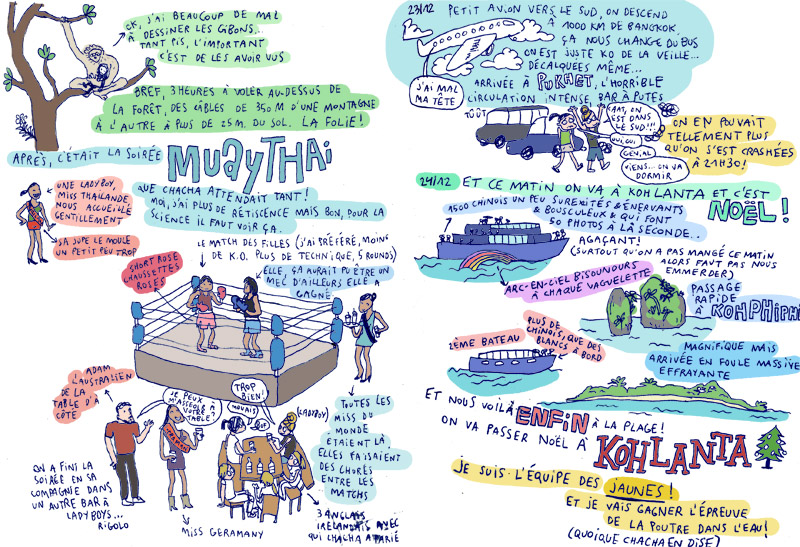 OK, J'AI BEAUCOUP DE MAL
À DESSINER LES GIBONS...
TANT PIS, L'IMPORTANT
C'EST DE LES AVOIR VUS
BREF, 3 HEURES À VOLER AU.DESSUS DE
LA FORÊT, DES CÂBLES DE 350 M D'UNE MONTAGNE
À L'AUTRE À PLUS DE 25 M. DU SOL. LA FOLIE!
APRÈS, C'ÉTAIT LA SOIRÉE
MUAYTHAI
QUE CHACHA ATTENDAIT TANT!
MOI, J'AI PLUS DE RÉTISCENCE MAIS BON, POUR LA
SCIENCE IL FAUT VOIR ÇA.
UNE LADYBOY,
MISS THAILANDE
NOUS ACCUEILLE
GENTILLEMENT
SA JUPE LE MOULE
UN PETIT PEU TROP
LE MATCH DES FILLES (J'AI PRÉFÉRÉ, MOINS
DE K.O. PLUS DE TECHNIQUE, 5 ROUNDS)
SHORT ROSE
CHAUSSETTES
ROSES
ELLE, ÇA AURAIT PU ÊTRE UN
MEC D'AILLEURS ELLE A
GAGNÉ
ADAM
L'AUSTRALIEN
DE LA
TABLE D'À
CÔTÉ
JE PEUX
M'ASSEOIR À
VOTRE
TABLE?
TROP
BIEN!
MOUAIS
OUF
(LADYBOY)
TOUTES LES
MISS DU
MONDE
ÉTAIENT LÀ,
ELLES FAISAIENT
DES CHORÉS
ENTRE LES
MATCHS
ON A FINI LA
SOIRÉE EN SA
COMPAGNIE DANS
UN AUTRE BAR À
LADYBOYS...
RIGOLO
MISS GERAMANY
3 ANGLAIS
IRELANDAIS AVEC
QUI CHACHA A PARIÉ
23/12 PETIT AVION VERS LE SUD, ON DESCEND
À 1000 KM DE BANGKOK,
ÇA NOUS CHANGE DU BUS
ON EST JUSTE KO DE LA VEILLE...
DÉCALQUÉES MÊME...
ARRIVÉE À PUKHET, L'HORRIBLE
CIRCULATION INTENSE, BAR À PUTES
J'AI MAL
MA TÊTE
TÛÛT
ON EST
DANS LE
SUD!!!
OUI, OUI
GÉNIAL
VIENS... ON VA
DORMIR
ON EN POUVAIT
TELLEMENT PLUS
QU'ON S'EST CRASHÉES
À 21H30!
24/12 ET CE MATIN ON VA À KOH LANTA ET C'EST
NOËL!
1500 CHINOIS UN PEU SUREXITÉS & ÉNERVANTS
& BOUSCULEUX & QUI FONT
50 PHOTOS À LA SECONDE..
AGAÇANT!
(SURTOUT QU'ON A PAS MANGÉ CE MATIN
ALORS FAUT PAS NOUS
EMMERDER)
ARC-EN-CIEL BISOUNOURS
À CHAQUE VAGUELETTE
PASSAGE
RAPIDE
À KOHPHIPHI
2ÈME BATEAU
PLUS DE
CHINOIS, QUE DES
BLANCS À BORD
MAGNIFIQUE MAIS
ARRIVÉE EN FOULE MASSIVE
EFFRAYANTE
ET NOUS VOILÀ ENFIN À LA PLAGE!
ON VA PASSER NOËL À KOHLANTA
JE SUIS L'ÉQUIPE DES JAUNES!
ET JE VAIS GAGNER L'ÉPREUVE
DE LA POUTRE DANS L'EAU!
(QUOIQUE CHACHA EN DISE)